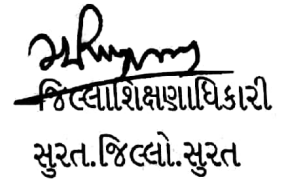 જિલ્લાશિક્ષણાધિકારી
સુરત.જિલ્લો.સુરત